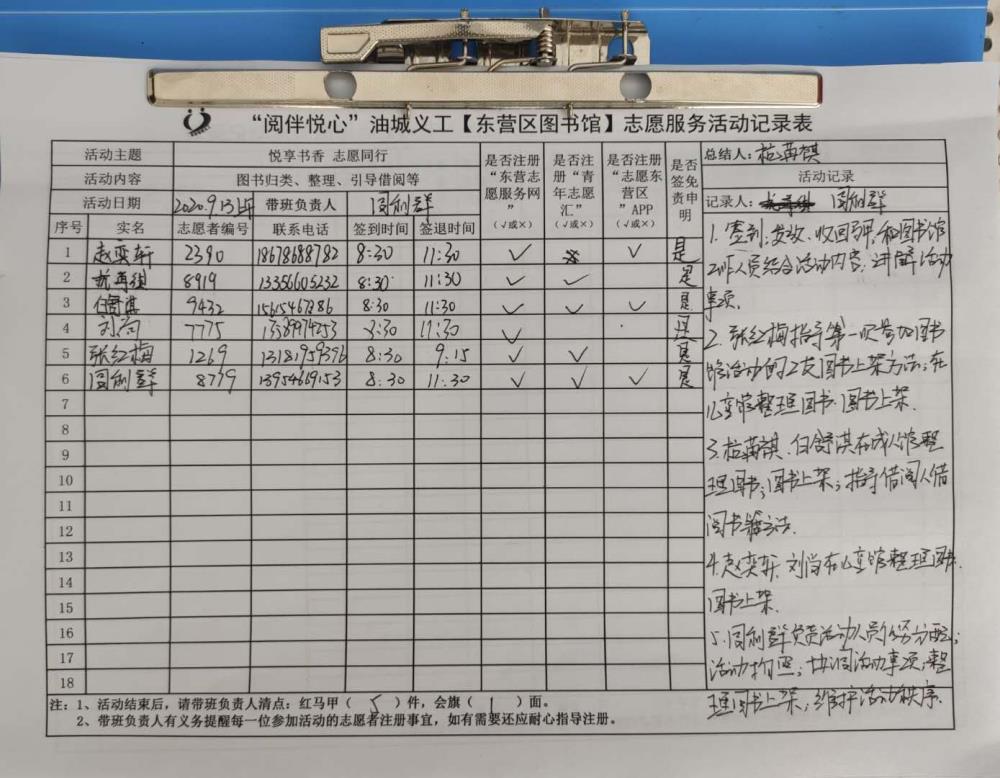 “阅伴悦心”油城义工【东营区图书馆】志愿服务活动记录表
活动主题 悦享书香 志愿同行
活动内容 图书归类、整理、引导借阅等
活动日期 2020.9.13上午 带班负责人 闫利群
是否注册“东营志愿服务网” （√或×）
是否注册“青年志愿汇” （√或×）
是否注册“志愿东营区”APP （√或×）
是否签免责申明
总结人：杭苒祺
活动记录
记录人： 闫利群
序号 实名 志愿者编号 联系电话 签到时间 签退时间
1 赵奕轩 2390 18678688782 8:30 11:30 √ √ 是
2 8919 13356606232 8:30 11:30 √ √ 是
3 任舒淇 9432 15615467886 8:30 11:30 √ √ √ 是
4 刘尚 7775 11:30 √ 是
5 张红梅 1269 8:30 9:15 √ √ 是
6 闫利群 8779 13954669153 8:30 11:30 √ √ √ 是
7
8
9
10
11
12
13
14
15
16
17
18
1. 签到;发放、收回马甲;和图书馆
工作人员结合活动内容;讲解活动
事项.
2. 张红梅指导第一次参加图书
馆活动的义工图书上架方法;在
儿童馆整理图书.图书上架.
3. 任舒淇在成人馆整
理图书;图书上架;指导借阅人借
阅书籍方法.
4.赵奕轩、刘尚在儿童馆整理图书.
图书上架.
5.闫利群负责活动人员任务分配;
活动拍照;协调活动事项;整
理图书上架;维护活动秩序.
注：1、活动结束后，请带班负责人清点：红马甲（ 5 ）件，会旗（ 1 ）面。
2、带班负责人有义务提醒每一位参加活动的志愿者注册事宜，如有需要还应耐心指导注册。